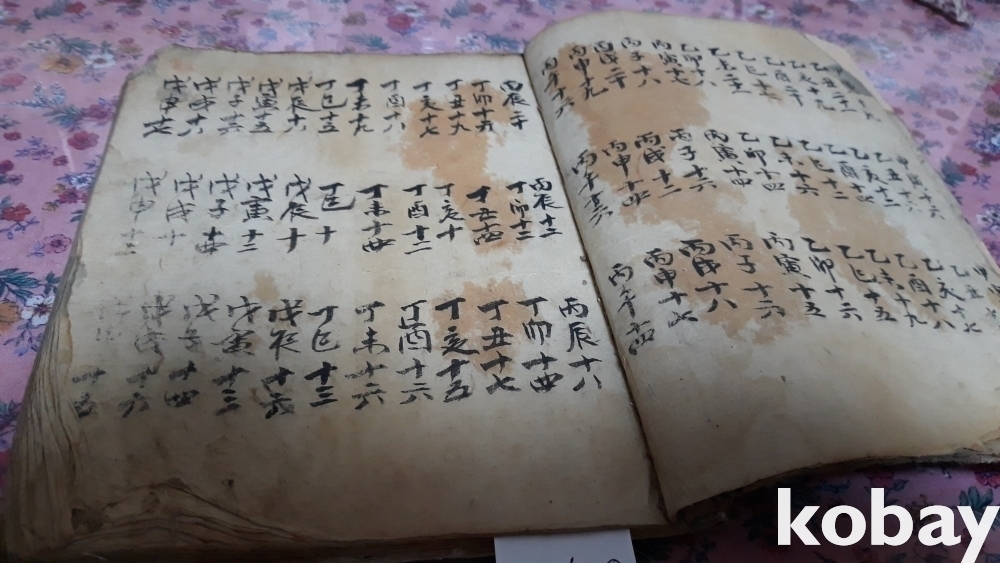 乙丑
乙亥十九
乙酉二十
乙巳十七
乙卯十六
丙寅十七
丙子十六
丙戌二十
丙申十九
丙午十六
甲寅十六
乙丑十六
乙亥十二
乙酉十二
乙巳十二
乙未十六
乙卯十四
丙寅十四
丙子十六
丙戌十二
丙申十四
丙午十六
乙丑十七
乙亥十七
乙酉十八
乙未十九
乙巳十五
乙卯十六
丙寅十五
丙子十六
丙戌十八
丙申十七
丙午十四
丙辰二十
丁卯十五
丁丑十九
丁亥十七
丁酉十八
丁未十九
丁巳十五
戊辰十六
戊寅十五
戊子十六
戊戌十八
戊申十七
丙辰十二
丁卯十二
丁丑十四
丁亥十
丁酉十二
丁未十四
丁巳十
戊辰十
戊寅十二
戊子十四
戊戌十
戊申十二
丙辰十八
丁卯十四
丁丑十七
丁亥十五
丁酉十六
丁未十六
丁巳十三
戊辰十六
戊寅十三
戊子十四
戊戌十六
十五
kobay